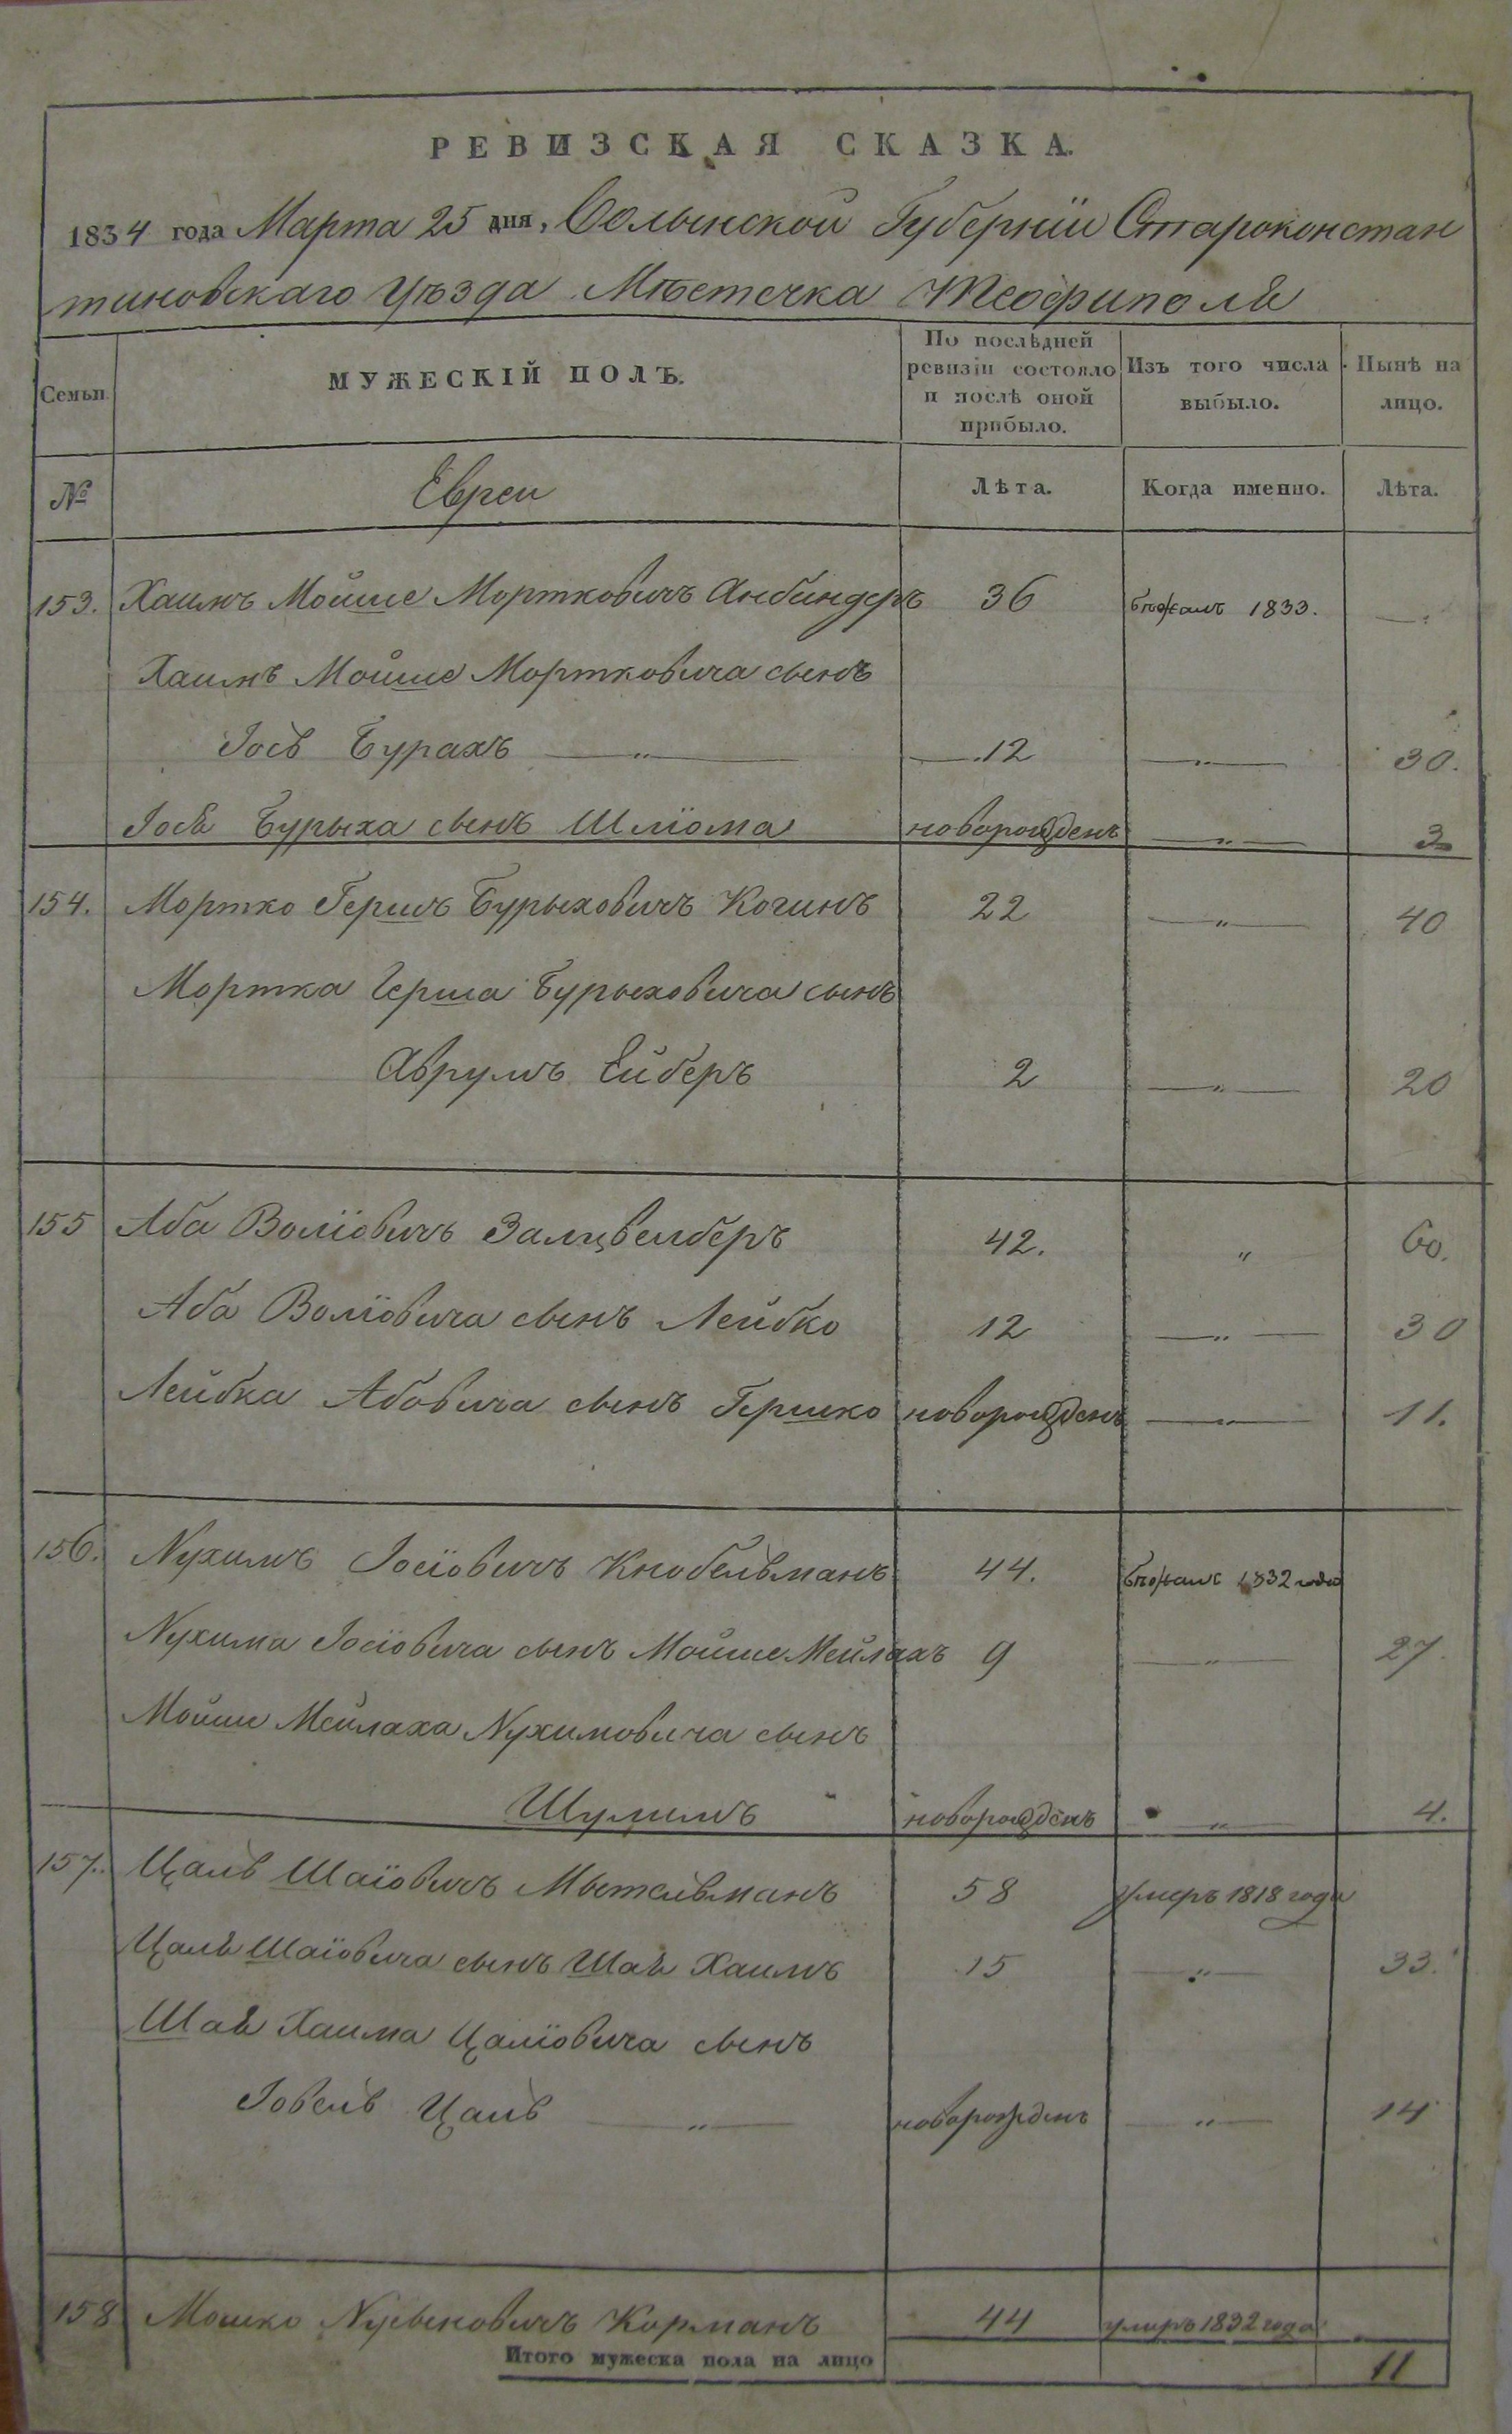 РЕВИЗСКАЯ СКАЗКА.
1834 года Марта 25 дня, Волынской Губернiи Староконстан
тиновскаго Уѣзда Мѣстечка Теофиполя
Семьи. МУЖЕСКIЙ ПОЛЪ. По послѣдней ревизiи состояло и послѣ оной прибыло. Изъ того числа выбыло. Нынѣ на лицо.
№ Евреи Лѣта. Когда именно. Лѣта.
153. Хаимъ Мойше Мортковичъ Анбиндеръ 36 бѣжалъ 1833. —
Хаимъ Мойше Мортковича сынъ
Iось Бурахъ — " — 12 — " — 30.
Iося Бурыха сынъ Шлiома новорожденъ — " — 3
154. Мортко Гершъ Бурыховичъ Когинъ 22 — " — 40
Мортка Герша Бурыховича сынъ
Аврумъ Ейберъ 2 — " — 20
155 Аба Волiовичъ Залцвемберъ 42. " 60.
Аба Волiовича сынъ Лейбко 12 — " — 30
Лейбка Абовича сынъ Гершко новорожденъ — " — 11.
156. Нухимъ Iосiовичъ Кнобельманъ 44. бѣжалъ 1832 года
Нухима Iосiовича сынъ Мойше Мейлахъ 9 — " — 27.
Мойши Мейлаха Нухимовича сынъ
Шулимъ новорожденъ — " — 4.
157. Цаль Шаiовичъ Мытельманъ 58 умеръ 1818 года
Цаля Шаiовича сынъ Шая Хаимъ 15 — " — 33.
Шая Хаима Цалiовича сынъ
Iовель Цаль — " — новорожденъ — " — 14
158 Мошко Нусыновичъ Корманъ 44 умеръ 1832 года
Итого мужеска пола на лицо 11